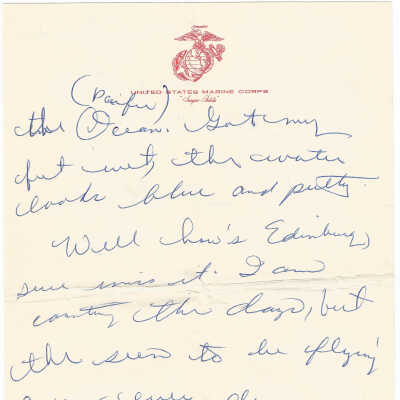 UNITED STATES MARINE CORPS
"Semper Fidelis"
(Pacific)
the Ocean. Got my
feet wet, the water
looks blue and pretty.
Well how's Edinburg,
sure miss it. I am
counting the days, but
the seem to be flying